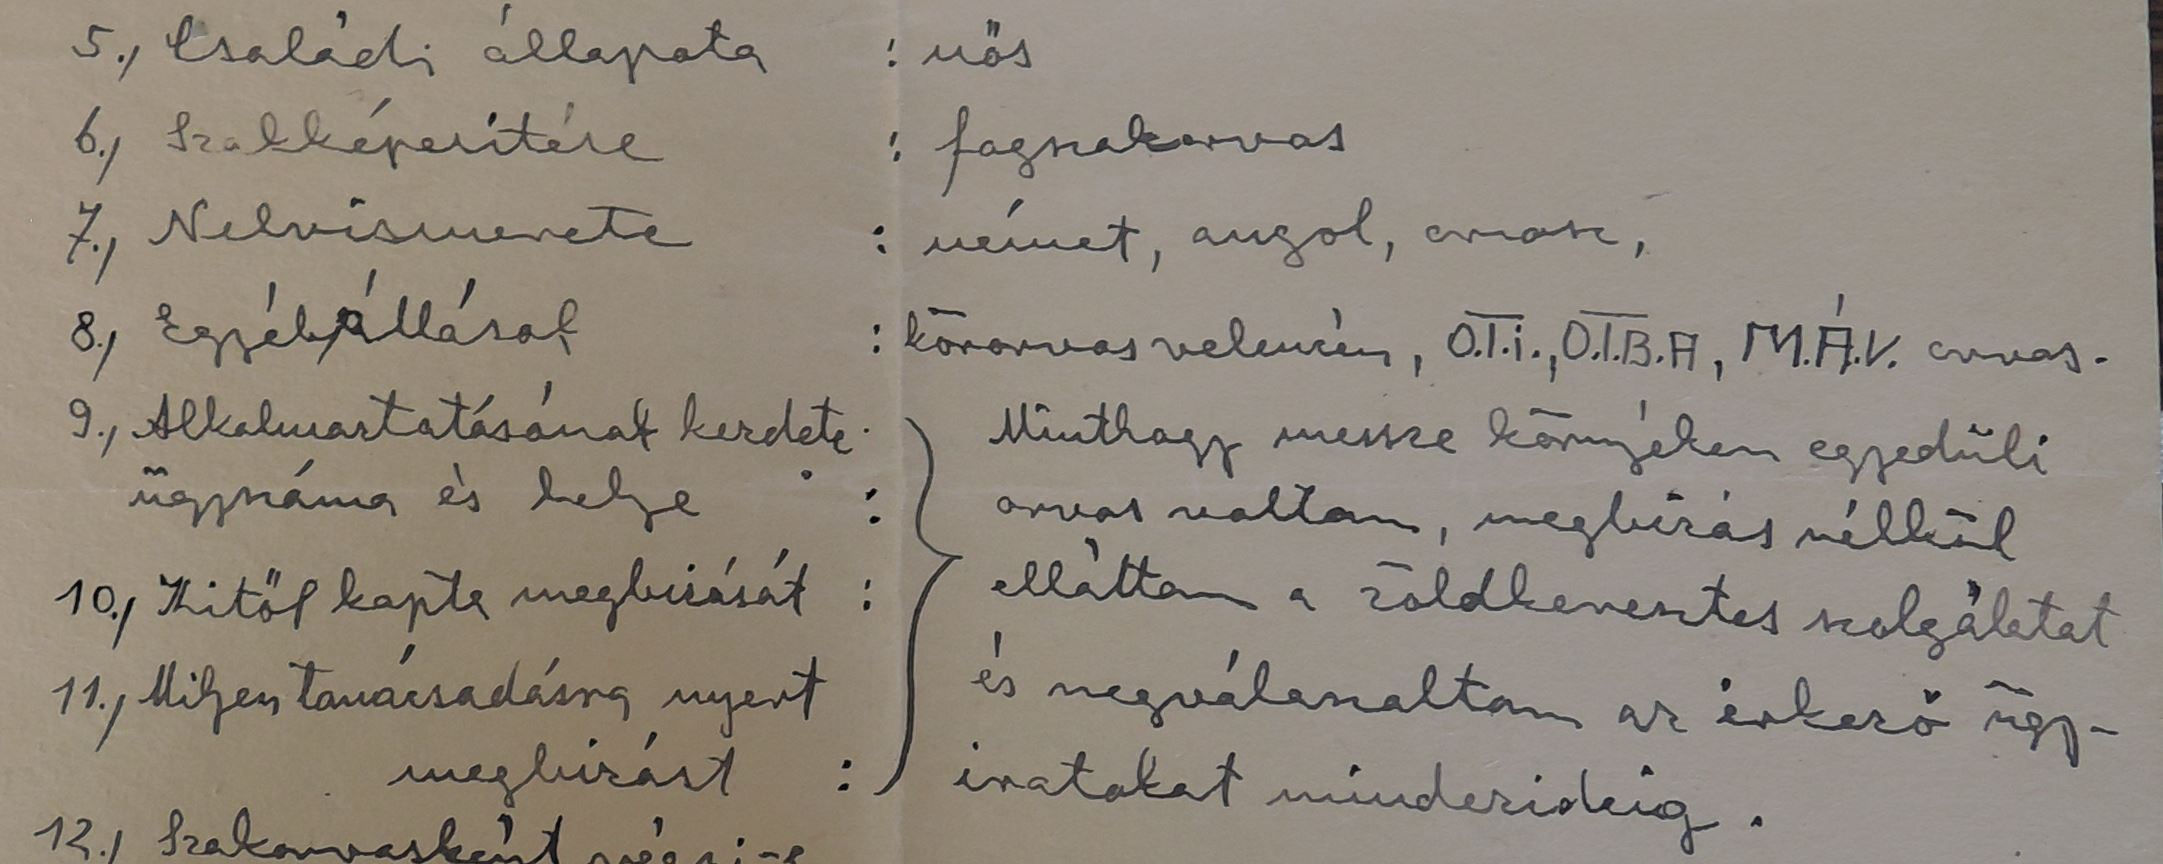 5., Családi állapota : nős
6., Szakképesitése : fogszakorvos
7., Nelvismerete : német, angol, orosz,
8., Egyéb állásaf : körorvos velencén, O.T.i., O.T.B.A, M.Á.V. orvos.
9., Alkalmaztatásának kezdete Minthogy messze környéken egyedüli
ügyszáma és helye : orvos voltam, megbizás nélkül
10., Kitől kapta megbizását : elláttam a zöldkeresztes szolgálatot
11., Milyen tanácsadásra nyert és megválaszoltam az érkező ügy-
megbizást : iratokat mindezideig.
12., Szakorvosként